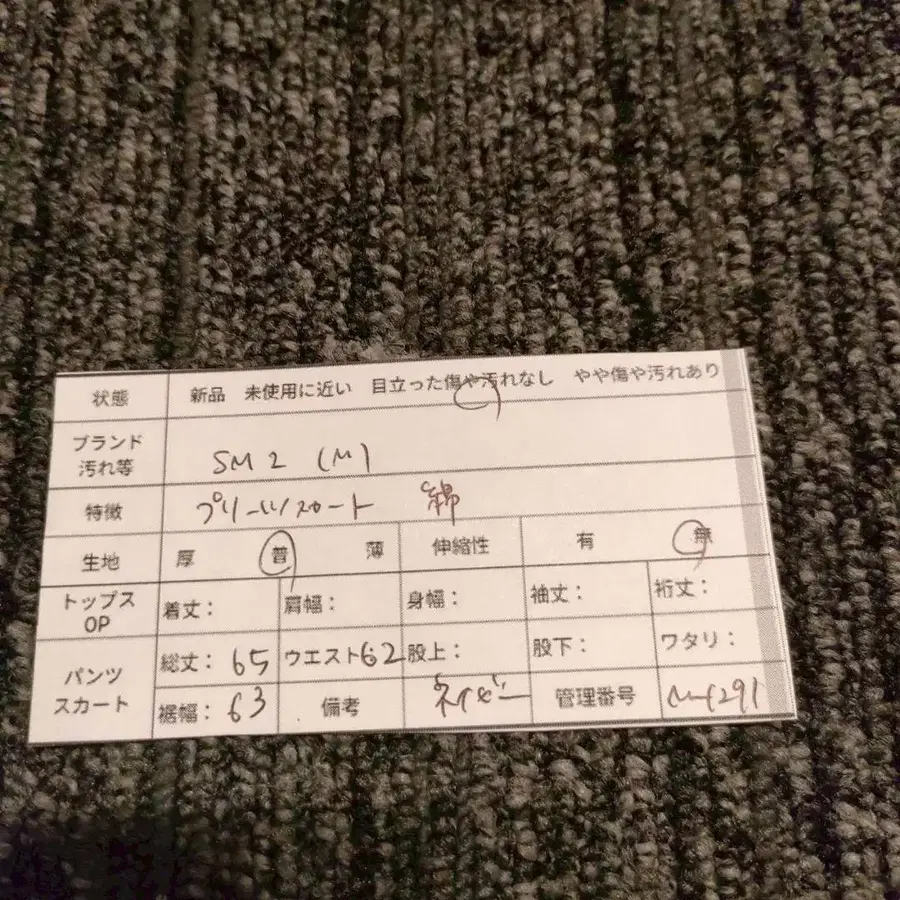 状態 新品 未使用に近い 目立った傷や汚れなし やや傷や汚れあり
ブランド
汚れ等 SM2 (M)
特徴 プリーツスカート 綿
生地 厚 普 薄 伸縮性 有 無
トップス
OP 着丈: 肩幅: 身幅: 袖丈: 裄丈:
パンツ
スカート 総丈: 65 ウエスト62 股上: 股下: ワタリ:
裾幅: 63 備考 ネイビー 管理番号